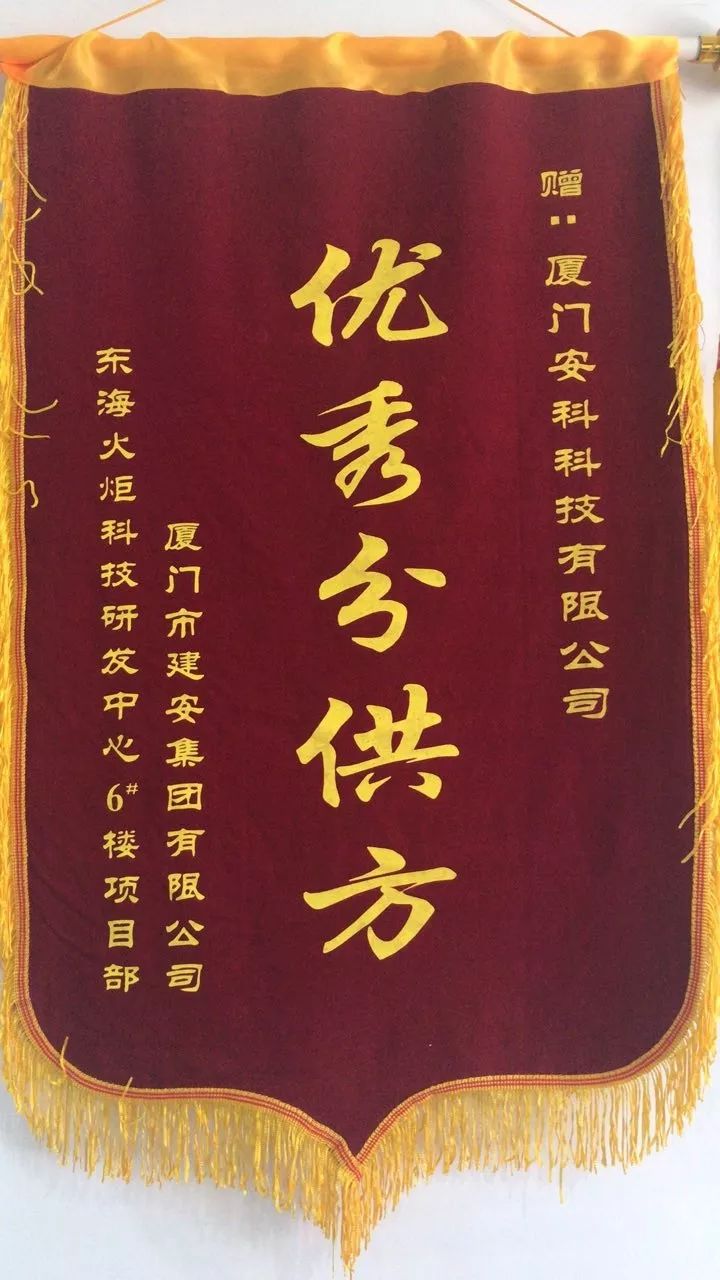 赠：厦门安科科技有限公司
优秀分供方
厦门市建安集团有限公司
东海火炬科技研发中心6#楼项目部